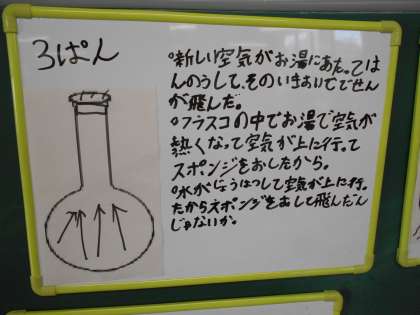 3ぱん
○新しい空気がお湯にあたっては
んのうして、そのいきおいででせん
が飛んだ。
○フラスコの中でお湯で空気が
熱くなって空気が上に行って
スポンジをおしたから。
○水がじょうはつして空気が上に行っ
たからスポンジをおして飛んだん
じゃないか。